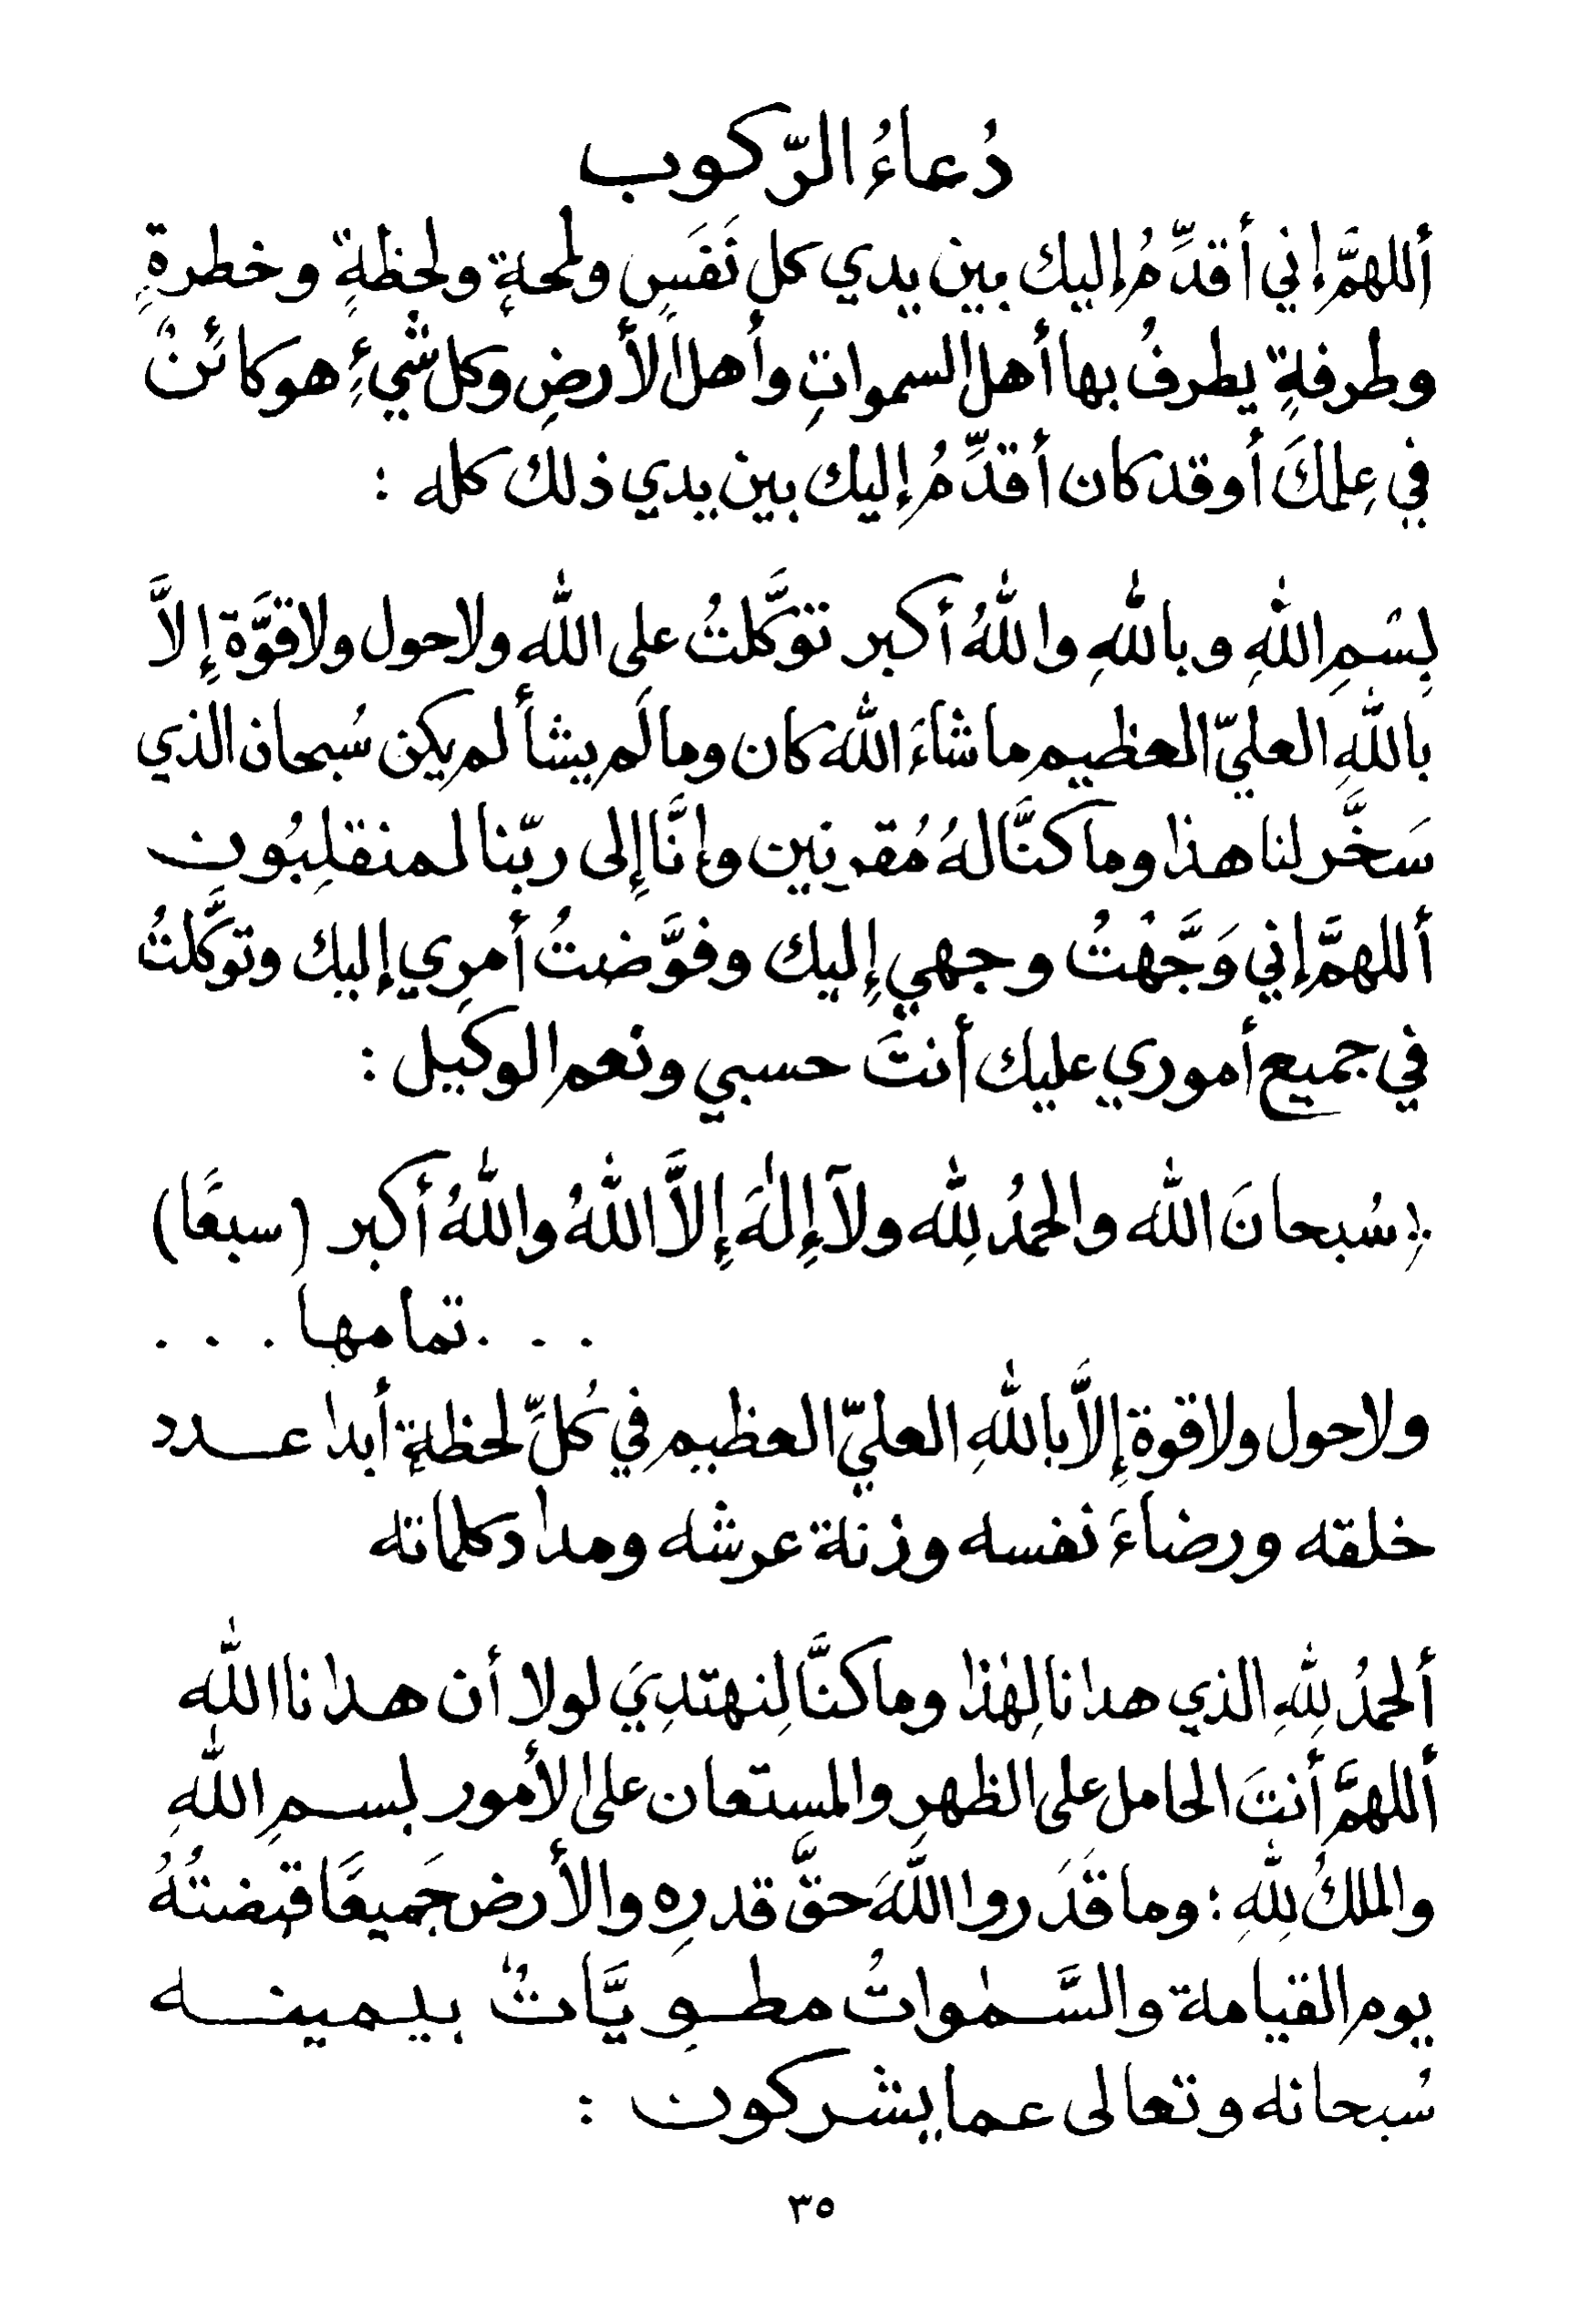 دُعاءُ الرّكوب
أللهمَّ إني أقدِّمُ إليك بين يدي كل نَفَسٍ ولمحةٍ ولحظةٍ وخطرةٍ
وطرفةٍ يطرفُ بها أهل السمواتِ وأهل الأرضِ وكل شيءٍ هو كائنٌ
في عِلمكَ أو قد كان أقدِّمُ إليك بين يدي ذلك كله :
بِسْمِ اللهِ وباللهِ واللهُ أكبر توَكَّلتُ على الله ولا حول ولا قوَّة إلاَّ
باللهِ العليّ العظيم ما شاءَ اللهُ كان وما لَم يشأ لم يكن سُبحان الذي
سَخَّر لنا هذا وما كنَّا لهُ مُقرنين وإنَّا إلى ربّنا لمنقلِبُون
أللهمَّ إني وَجَّهْتُ وجهي إليك وفوَّضتُ أمرِي إليك وتوكَّلتُ
في جميع أموري عليك أنتَ حسبي ونعم الوكيل :
﴿ سُبحانَ الله والحمدُ لِله ولآ إِلٰهَ إِلاَّ اللهُ واللهُ أكبر (سبعًا)
. . . تمامها . . .
ولا حول ولا قوة إلاَّ باللهِ العليّ العظيم في كُلِّ لحظةٍ أبدا عـدد
خلقه ورضاءَ نفسه وزنة عرشه ومداد كلماته
ألحمدُ لِلهِ الذي هدانا لِهٰذا وما كنَّا لِنهتدِيَ لولا أن هدانا الله
أللهمَّ أنتَ الحامل على الظهرِ والمستعان على الأمور بسـمِ اللهِ
والملكُ لِلهِ : وما قَدَروا اللهَ حقَّ قدرِه والأرض جَميعًا قبضتُهُ
يوم القيامة والسَّـمٰواتُ مطـوِيَّاتٌ بيـمينـه
سُبحانه وتعالى عما يشركون :
٣٥